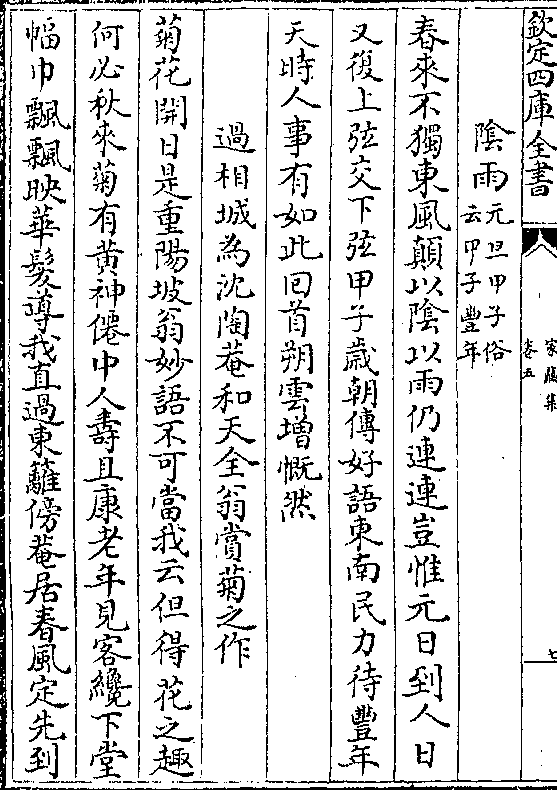 欽定四庫全書
家藏集
卷五
七
陰雨元旦甲子俗
云甲子豐年
春來不獨東風顛以陰以雨仍連連豈惟元日到人日
又復上弦交下弦甲子歲朝傳好語東南民力待豐年
天時人事有如此回首朔雲增慨然
過相城為沈陶菴和天全翁賞菊之作
菊花開日是重陽坡翁妙語不可當我云但得花之趣
何必秋來菊有黄神僊中人壽且康老年見客纔下堂
幅巾飄飄映華髮導我直過東籬傍菴居春風定先到